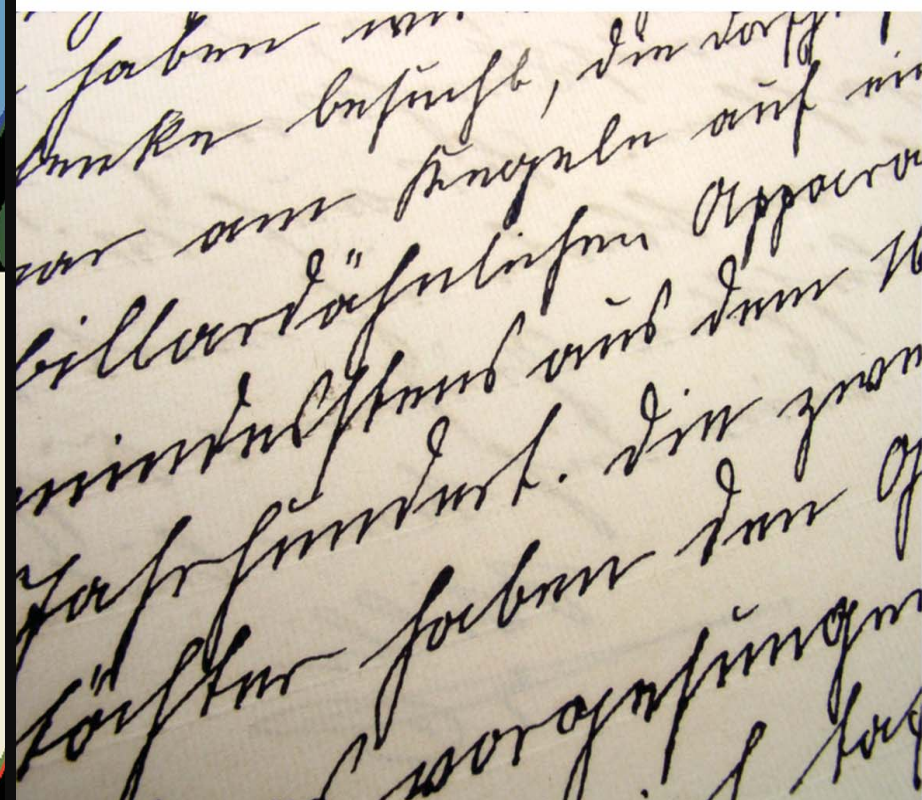 haben wi
enke besucht, die dasch
war am Kegeln auf ein
billardähnlichen Appara
mindestens aus dem 16
Jahrhundert. Die zwe
töchter haben den G
vorgesunge
ich tat